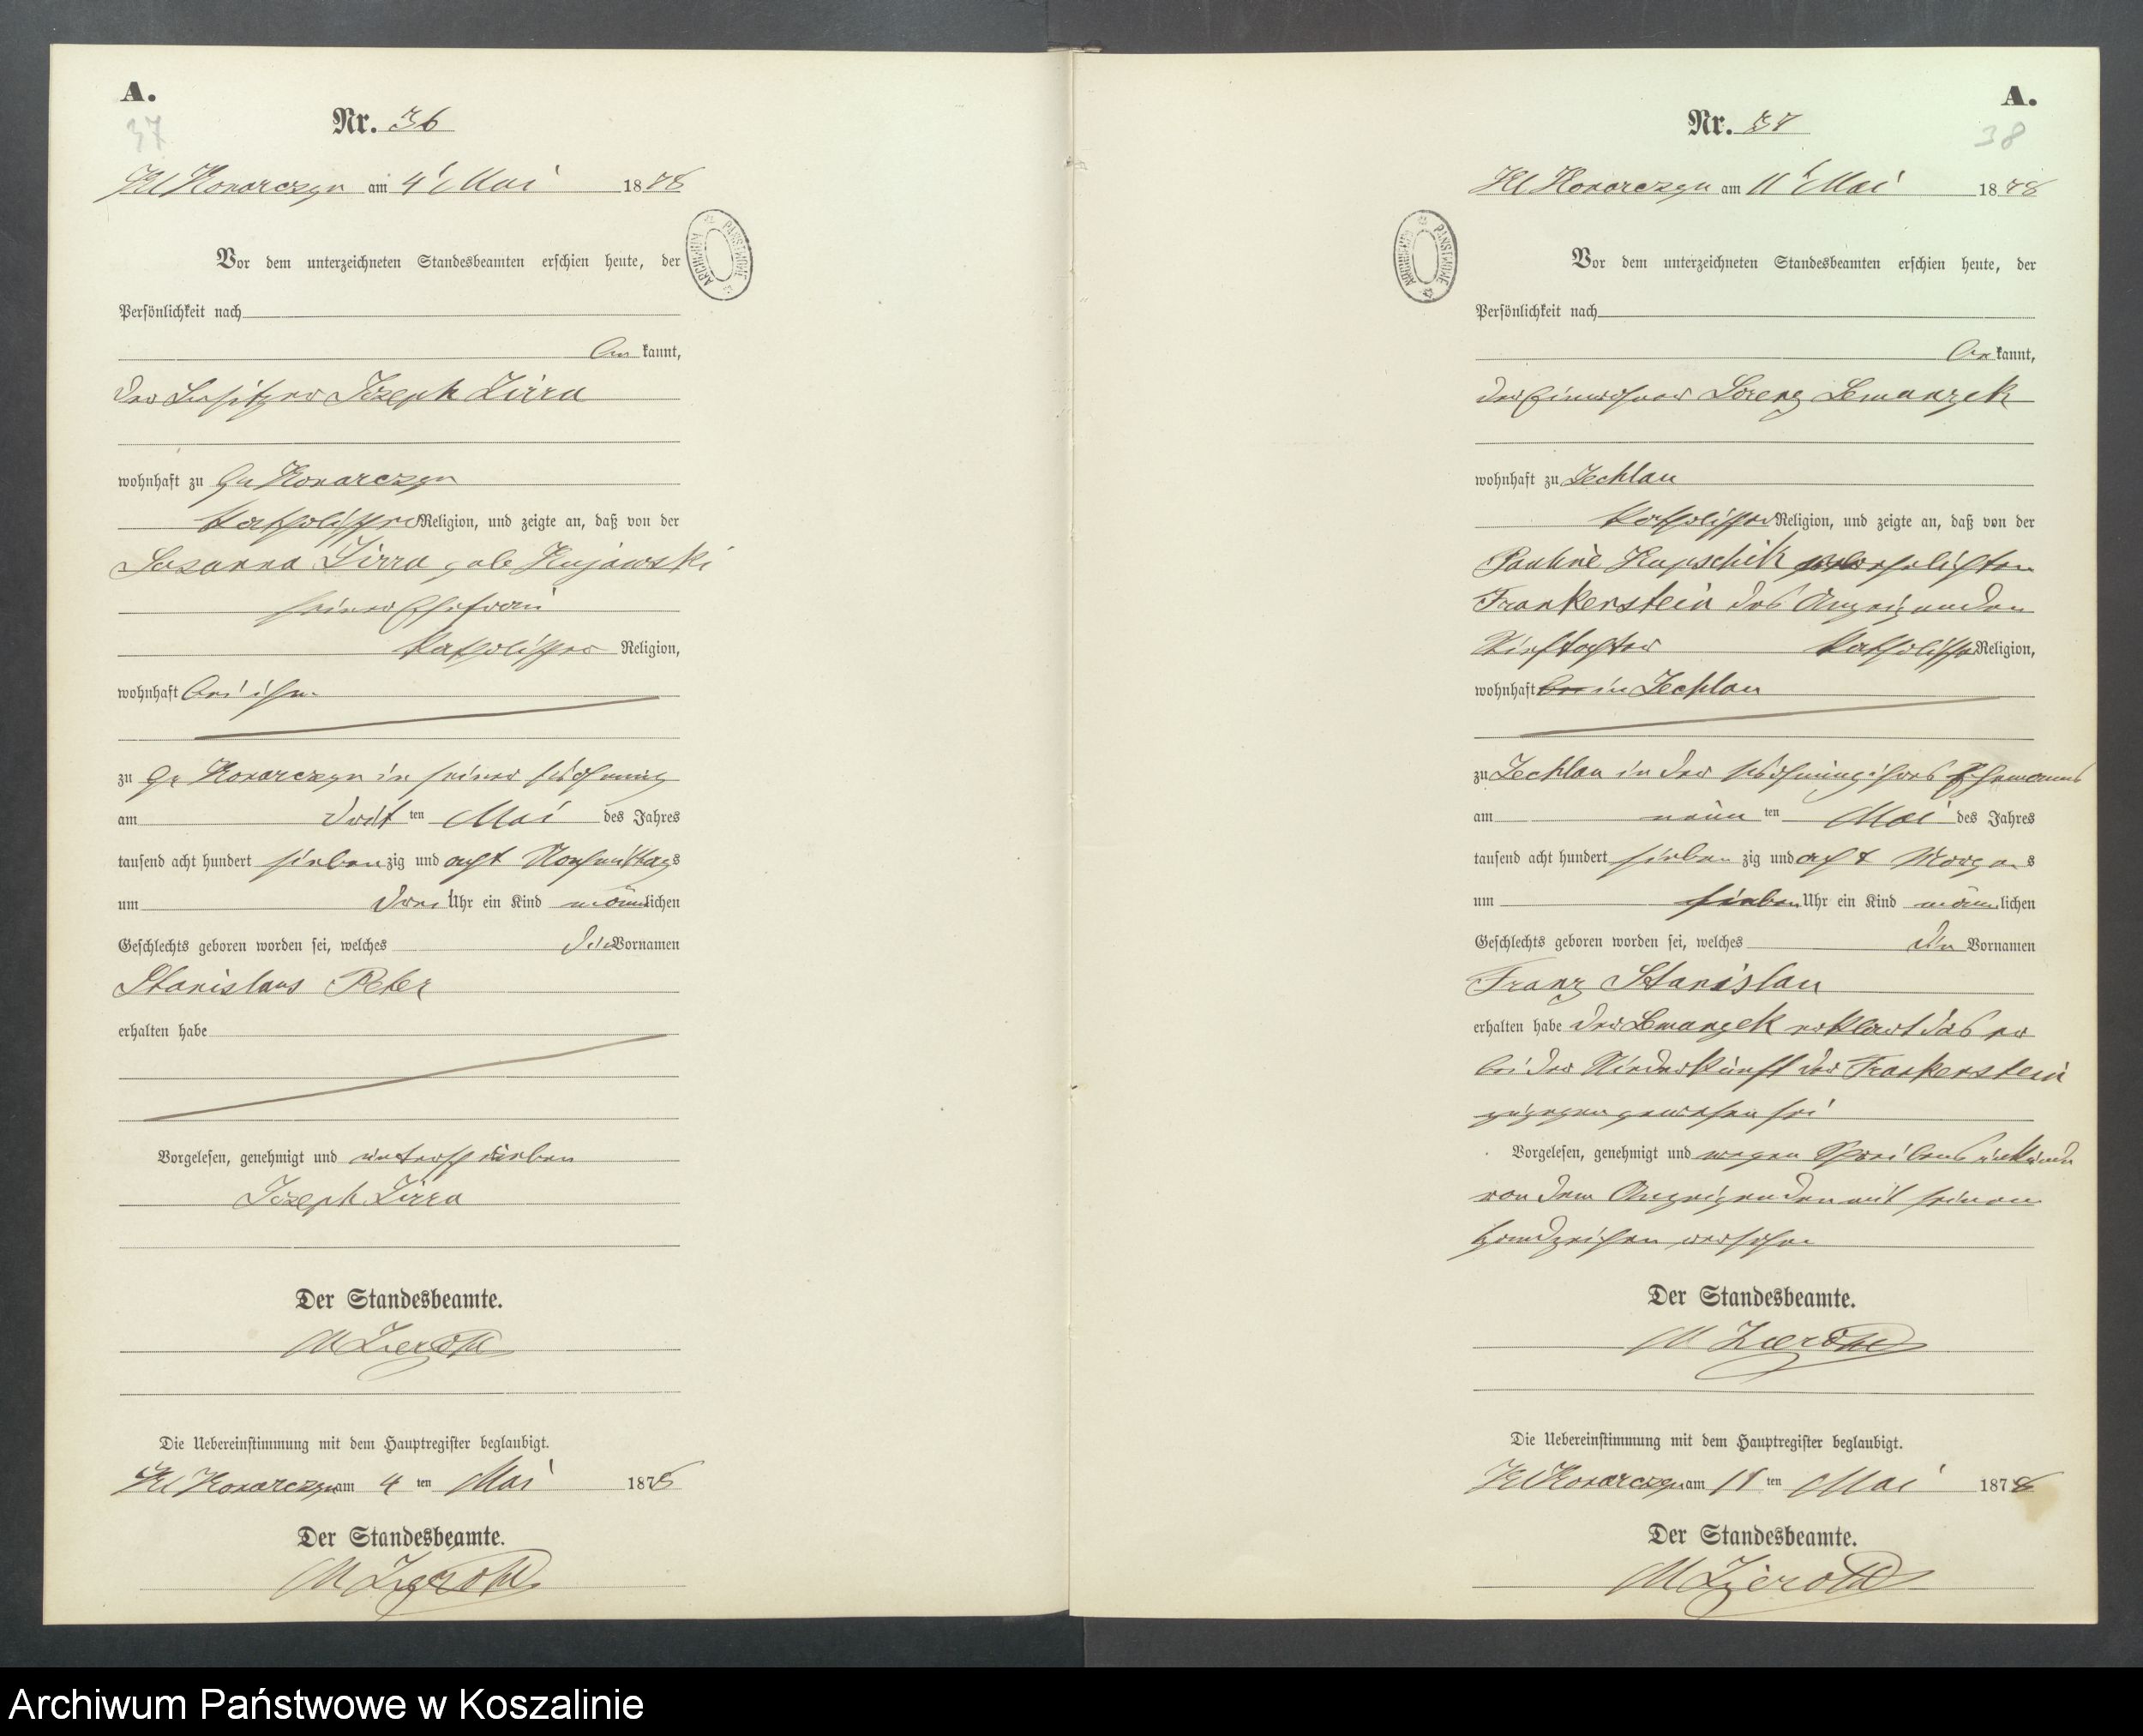 A.
37
Nr. 36
Kl Konarczyn am 4t Mai 1878
Vor dem unterzeichneten Standesbeamten erschien heute, der
Persönlichkeit nach
bekannt,
der Besitzer Joseph Zirra
wohnhaft zu Gr Konarczyn
katholischer Religion, und zeigte an, daß von der
Susanna Zirra geb Kujawski
seiner Ehefrau
katholischer Religion,
wohnhaft bei ihm
zu Gr Konarczyn in seiner Wohnung
am dritten Mai des Jahres
tausend acht hundert siebenzig und acht Nachmittags
um drei Uhr ein Kind männlichen
Geschlechts geboren worden sei, welches die Vornamen
Stanislaus Peter
erhalten habe
Vorgelesen, genehmigt und unterschrieben
Joseph Zirra
Der Standesbeamte.
M Zieroth
Die Uebereinstimmung mit dem Hauptregister beglaubigt.
Kl Konarczyn am 4 ten Mai 1878
Der Standesbeamte.
M Zieroth
ARCHIWUM PAŃSTWOWE
A.
38
Nr. 37
Kl Konarczyn am 11t Mai 1878
Vor dem unterzeichneten Standesbeamten erschien heute, der
Persönlichkeit nach
bekannt,
der Einwohner Lorenz Lemanzek
wohnhaft zu Zechlau
katholischer Religion, und zeigte an, daß von der
Pauline Kupschik verehelichten
Frankenstein des Anzeigenden
Stieftochter katholischer Religion,
wohnhaft in Zechlau
zu Zechlau in der Wohnung ihres Ehemanns
am neun ten Mai des Jahres
tausend acht hundert sieben zig und acht Morgens
um sieben Uhr ein Kind männlichen
Geschlechts geboren worden sei, welches den Vornamen
Franz Stanislau
erhalten habe der Lemanzek erklärt das er
bei der Niederkunft der Frankenstein
zugegen gewesen sei
Vorgelesen, genehmigt und wegen Schreibens unkunde
von dem Anzeigenden mit seinem
Handzeichen versehen
Der Standesbeamte.
M Zieroth
Die Uebereinstimmung mit dem Hauptregister beglaubigt.
Kl Konarczyn am 11 ten Mai 1878
Der Standesbeamte.
M Zieroth
ARCHIWUM PAŃSTWOWE
Archiwum Państwowe w Koszalinie